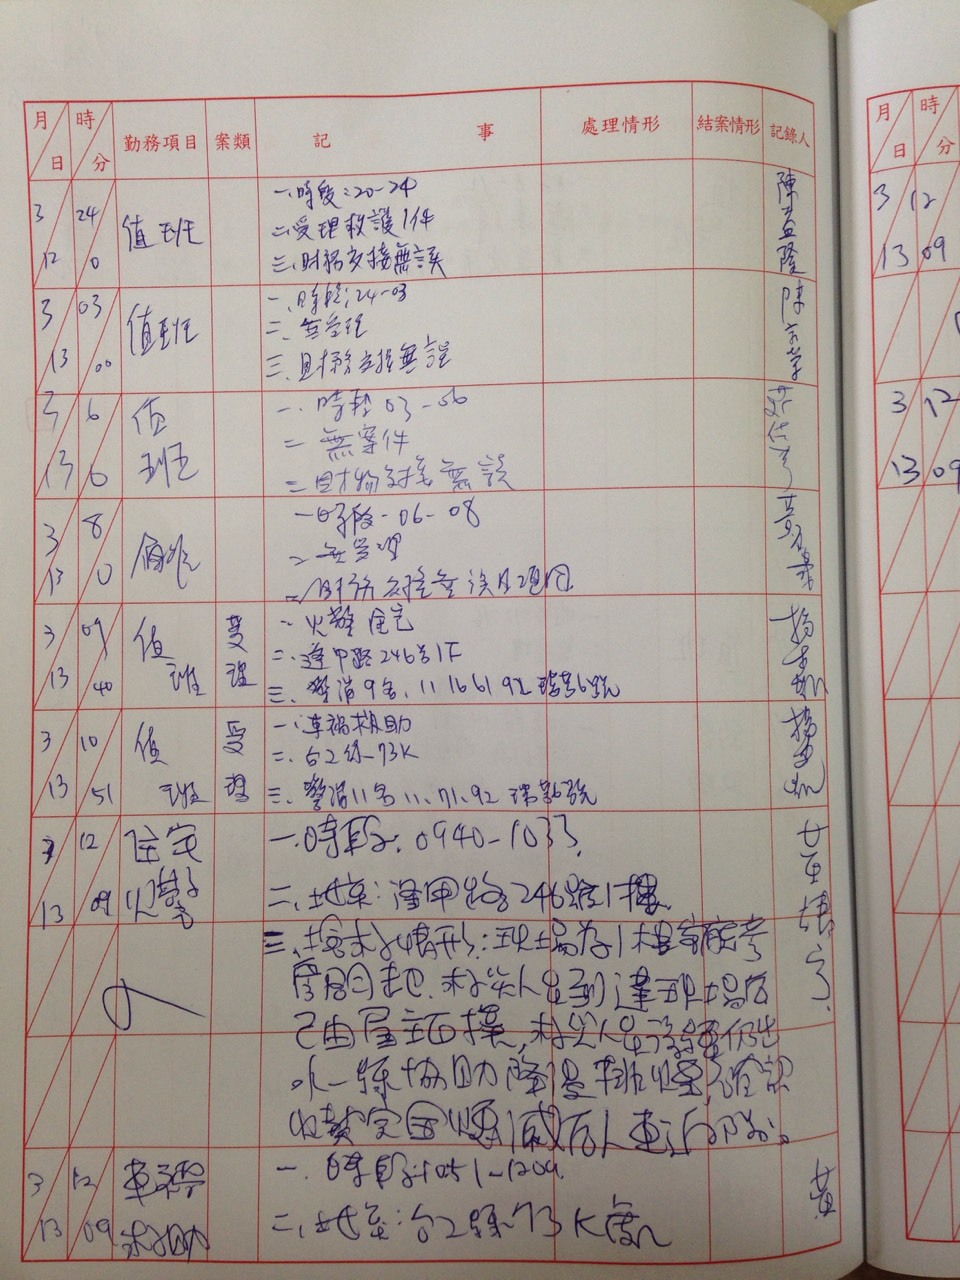 月 日 時 分 勤務項目 案類 記 事 處理情形 結案情形 記錄人
3 12 24 0 值班 陳孟隆
一、時段:20-24
二、受理救護1件
三、財務交接無誤
3 13 03 00 值班
一、時段:24-03
二、無受理
三、財務交接無誤
3 13 6 0 值班
一、時段 03-06
二 無案件
三 財物交接無誤
3 13 8 0 值班
一 時段-06-08
二 無受理
3 13 09 40 值班 受理
一 火警 住宅
二、逢甲路246號1F
三、警消9名、11 16 61 92 瑞芳6號
3 13 10 51 值班 受理
一、車禍救助
二、台2線-73K
三、警消11名 11、71、92 瑞芳6號
3 13 12 09 住宅火警
一、時段:0940-1033
二、地點:逢甲路246號1樓
三、搶救情形:現場為1樓
房間起,救災人員到達現場后
已由屋主
水一線協助降溫排煙,確認
3 13 12 09 車禍救助 黃
一、時段:1051-1209
二、地點:台2線73K處
3 12 13 09
3 12 13 09
月 日 時 分